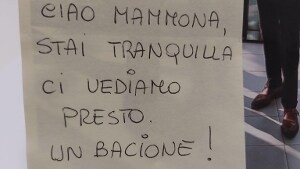 CIAO MAMMONA,
STAI TRANQUILLA
CI VEDIAMO
PRESTO.
UN BACIONE!